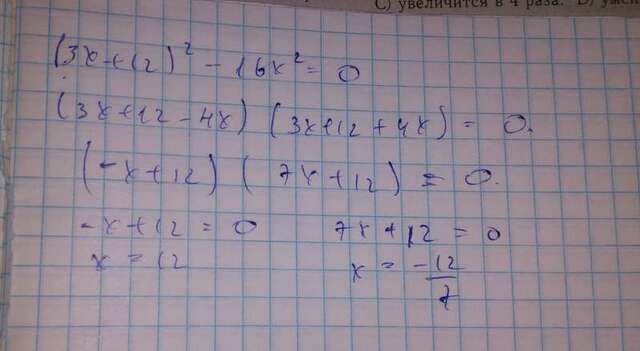 С) увеличится в 4 раза. D)
(3x+12)² - 16x² = 0
(3x+12-4x) (3x+12+4x) = 0.
(-x+12) (7x+12) = 0.
-x+12 = 0 7x+12 = 0
x = 12 x = -12/7